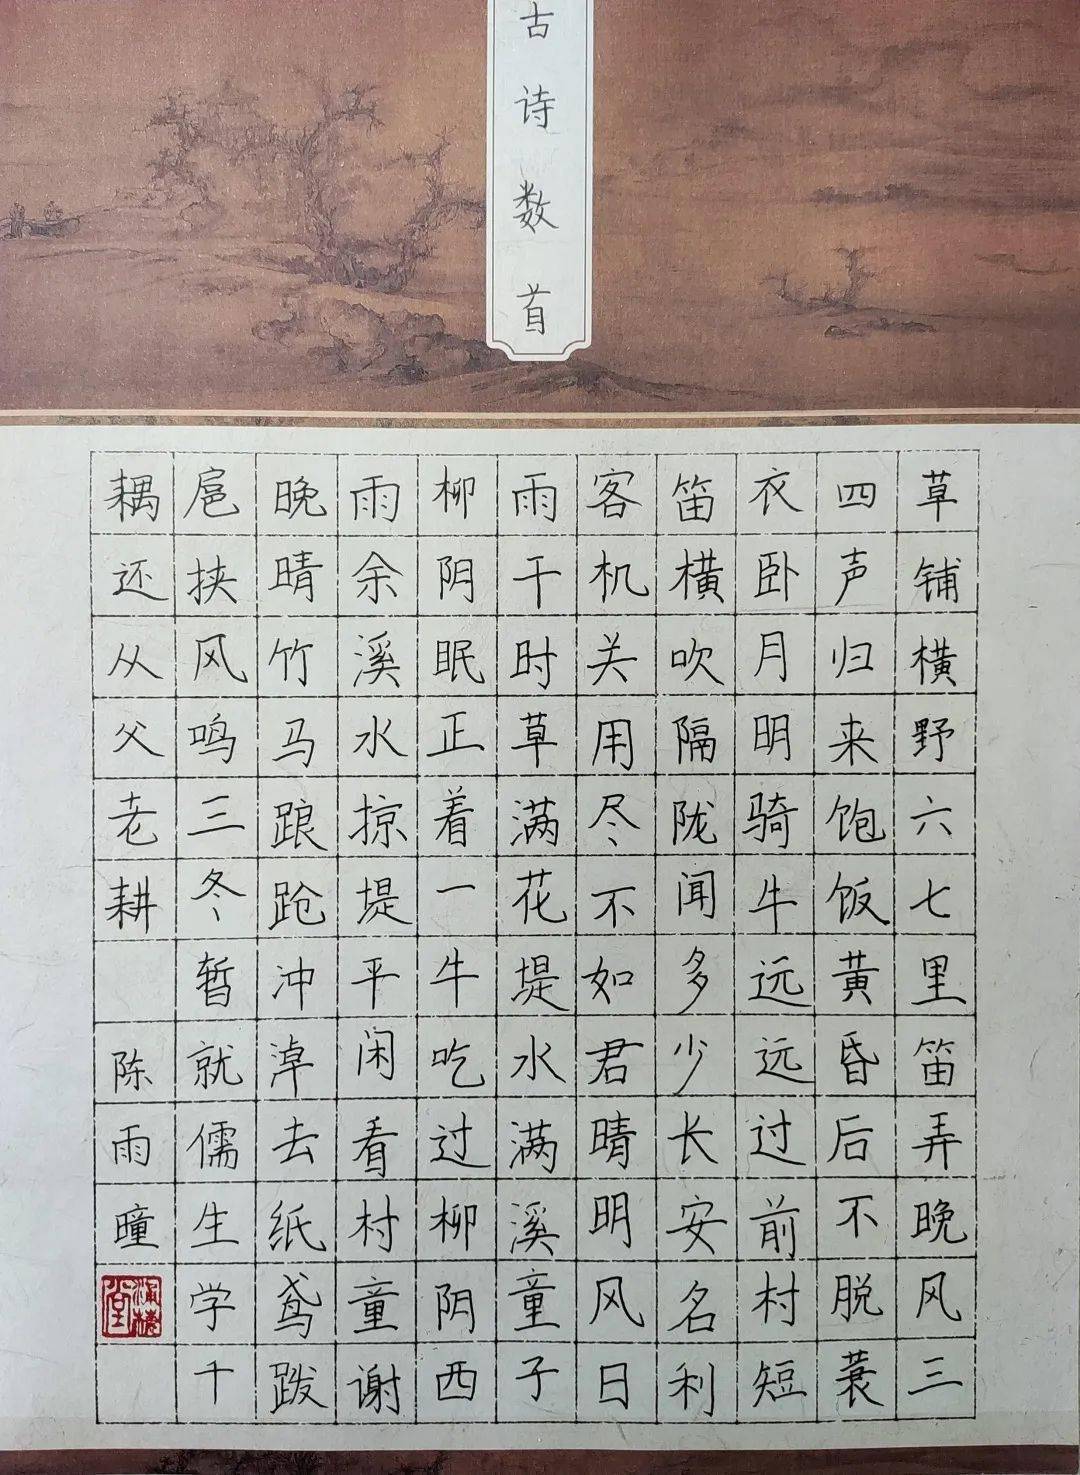 古诗数首
草铺横野六七里笛弄晚风三
四声归来饱饭黄昏后不脱蓑
衣卧月明骑牛远远过前村短
笛横吹隔陇闻多少长安名利
客机关用尽不如君晴明风日
雨干时草满花堤水满溪童子
柳阴眠正着一牛吃过柳阴西
雨余溪水掠堤平闲看村童谢
晚晴竹马踉跄冲淖去纸鸢跋
扈挟风鸣三冬暂就儒生学千
耦还从父老耕 陈雨曈